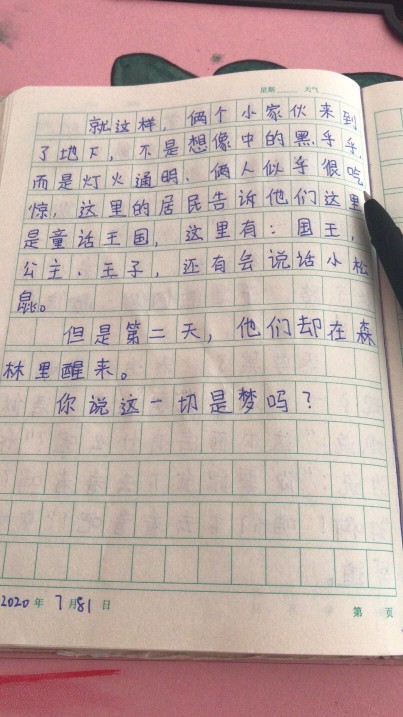 星期 天气
就这样，俩个小家伙来到
了地下，不是想像中的黑乎乎，
而是灯火通明、俩人似乎很吃
惊，这里的居民告诉他们这里
是童话王国，这里有：国王，
公主、王子，还有会说话小松
鼠。
但是第二天，他们却在森
林里醒来。
你说这一切是梦吗？
2020年 7月81日
第 页